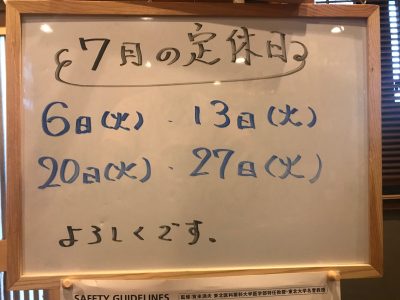 7月の定休日
6日(火)・13日(火)
20日(火)・27日(火)
よろしくです。
SAFETY GUIDELINES